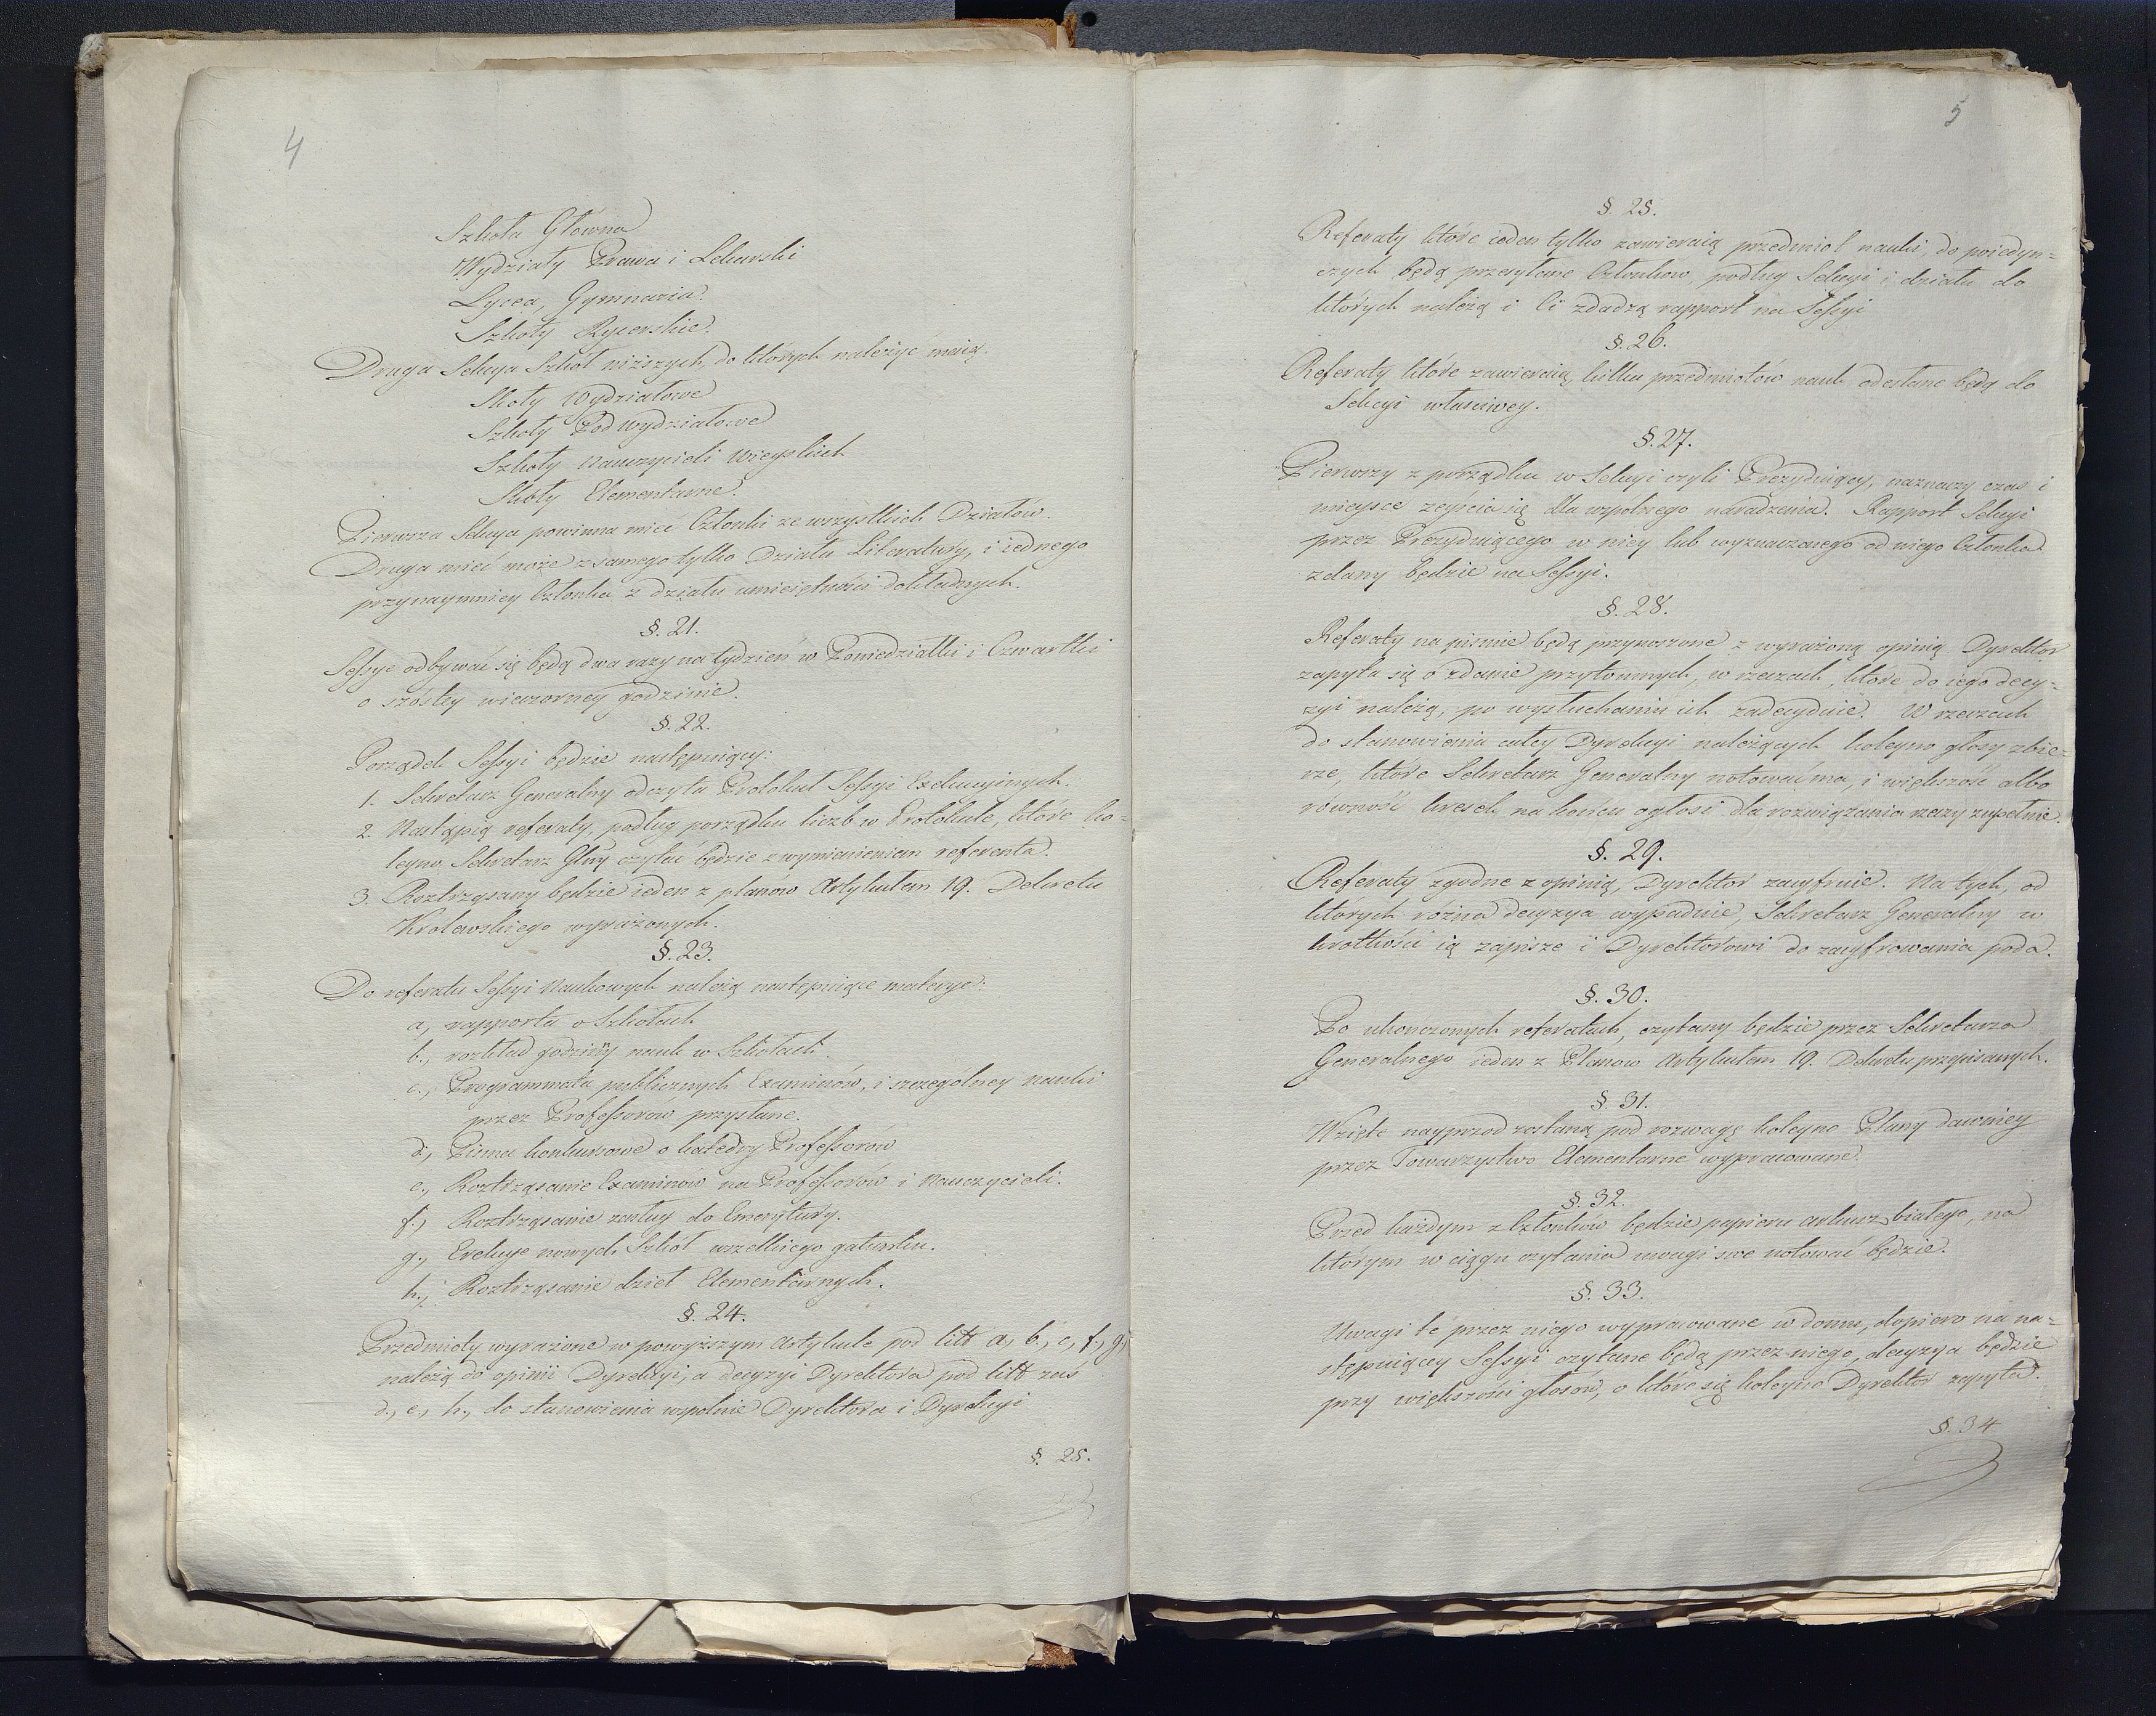 4
Szkoła Główna
Wydziały Prawa i Lekarski
Lycea, Gymnazia.
Szkoły Rycerskie.
Druga Sekcya Szkół niższych, do których należyc maią.
Skoły Wydziałowe
Szkoły Podwydziałowe
Szkoły Nauczycieli Wieyskich
Skoły Elementarne.
Pierwsza Sekcya powinna mieć Członki ze wszystkich Działów.
Druga mieć może z samego tylko Działu Literatury, i iednego
przynaymniey Członka z działu umieiętności dokładnych.
§. 21.
Sessye odbywać się będą dwa razy na tydzień w Poniedziałki i Czwartki
o szóstey wieczorney godzinie.
§. 22.
Porządek Sessyi będzie następuiący:
1. Sekretarz Generalny odczyta Protokuł Sessyi Exekucyinych.
2. Nastąpią referaty, podług porządku liczb w Protokule, które ko=
leyno Sekretarz Glny czytać będzie z wymienieniem referenta.
3. Roztrząsany będzie ieden z planów Artykułem 19. Dekretu
Krolewskiego wyrażonych.
§. 23.
Do referatu Sessyi Naukowych należą następuiące materye:
a, rapporta o Szkołach
b., rozkład godziny nauk w Szkołach.
c., Programmata publicznych Examinów, i szczegolney Nauki
przez Professorów przysłane.
d., Pisma konkursowe o katedry Professorów
e., Roztrząsanie Examinow na Professorów i Nauczycieli.
f.) Roztrząsanie zasług do Emerytury.
g., Erekcye nowych Szkół wszelkiego gatunku.
h., Roztrząsanie dzieł Elementarnych.
§. 24.
Przedmioty wyrażone w powyższym Artykule pod litt a, b., c, f., g,
należą do opinii Dyrekcyi, a decyzyi Dyrektora pod litt zaś
d., e., h., do stanowienia wspólnie Dyrektora i Dyrekcyi
§. 25.
5
§. 25.
Referaty które ieden tylko zawieraią przedmiot nauki, do poiedyn=
czych będą przesyłane Członków, podług Sekcyi i działu do
których należą i Ci zdadzą rapport na Sessyi
§. 26.
Referaty które zawieraią, kilku przedmiotów nauk odesłane będą do
Sekcyi właściwey.
§. 27.
Pierwszy z porządku w Sekcyi czyli Prezyduiący, naznaczy czas i
mieysce zeyścia się dla wspolnego naradzenia. Rapport Sekcyi
przez Prezyduiącego w niey lub wyznaczonego od niego Członka
zdany będzie na Sessyi.
§. 28.
Referaty na pismie będą przynoszone z wyrażoną opinią. Dyrektor
zapyta się o zdanie przytomnych, w rzeczach, które do iego decy=
zyi należą, po wysłuchaniu ich zadecyduie. W rzeczach
do stanowienia całey Dyrekcyi należących koleyno głosy zbie=
rze, które Sekretarz Generalny notować ma, i większość albo
równość kresek na końcu ogłosi dla rozwiązania rzeczy zupełnie.
§. 29.
Referaty zgodne z opinią, Dyrektor zacyfruie. Na tych, od
których różna decyzya wypadnie, Sekretarz Generalny w
krotkości ią zapisze i Dyrektorowi do zacyfrowania poda.
§. 30.
Po ukonczonych referatach, czytany będzie przez Sekretarza
Generalnego ieden z Planow Artykułem 19. Dekretu przepisanych.
§. 31.
Wzięte nayprzod zostaną pod rozwagę koleyno Plany dawniey
przez Towarzystwo Elementarne wypracowane.
§. 32.
Przed każdym z Członków będzie papieru arkusz białego, na
którym w ciągu czytania uwagi swe notować będzie.
§. 33.
Uwagi te przez niego wypracowane w domu, dopiero na na=
stępuiącey Sessyi czytane będą przez niego, decyzya będzie
przy większości głosów, o które się koleyno Dyrektor zapyta.
§. 34